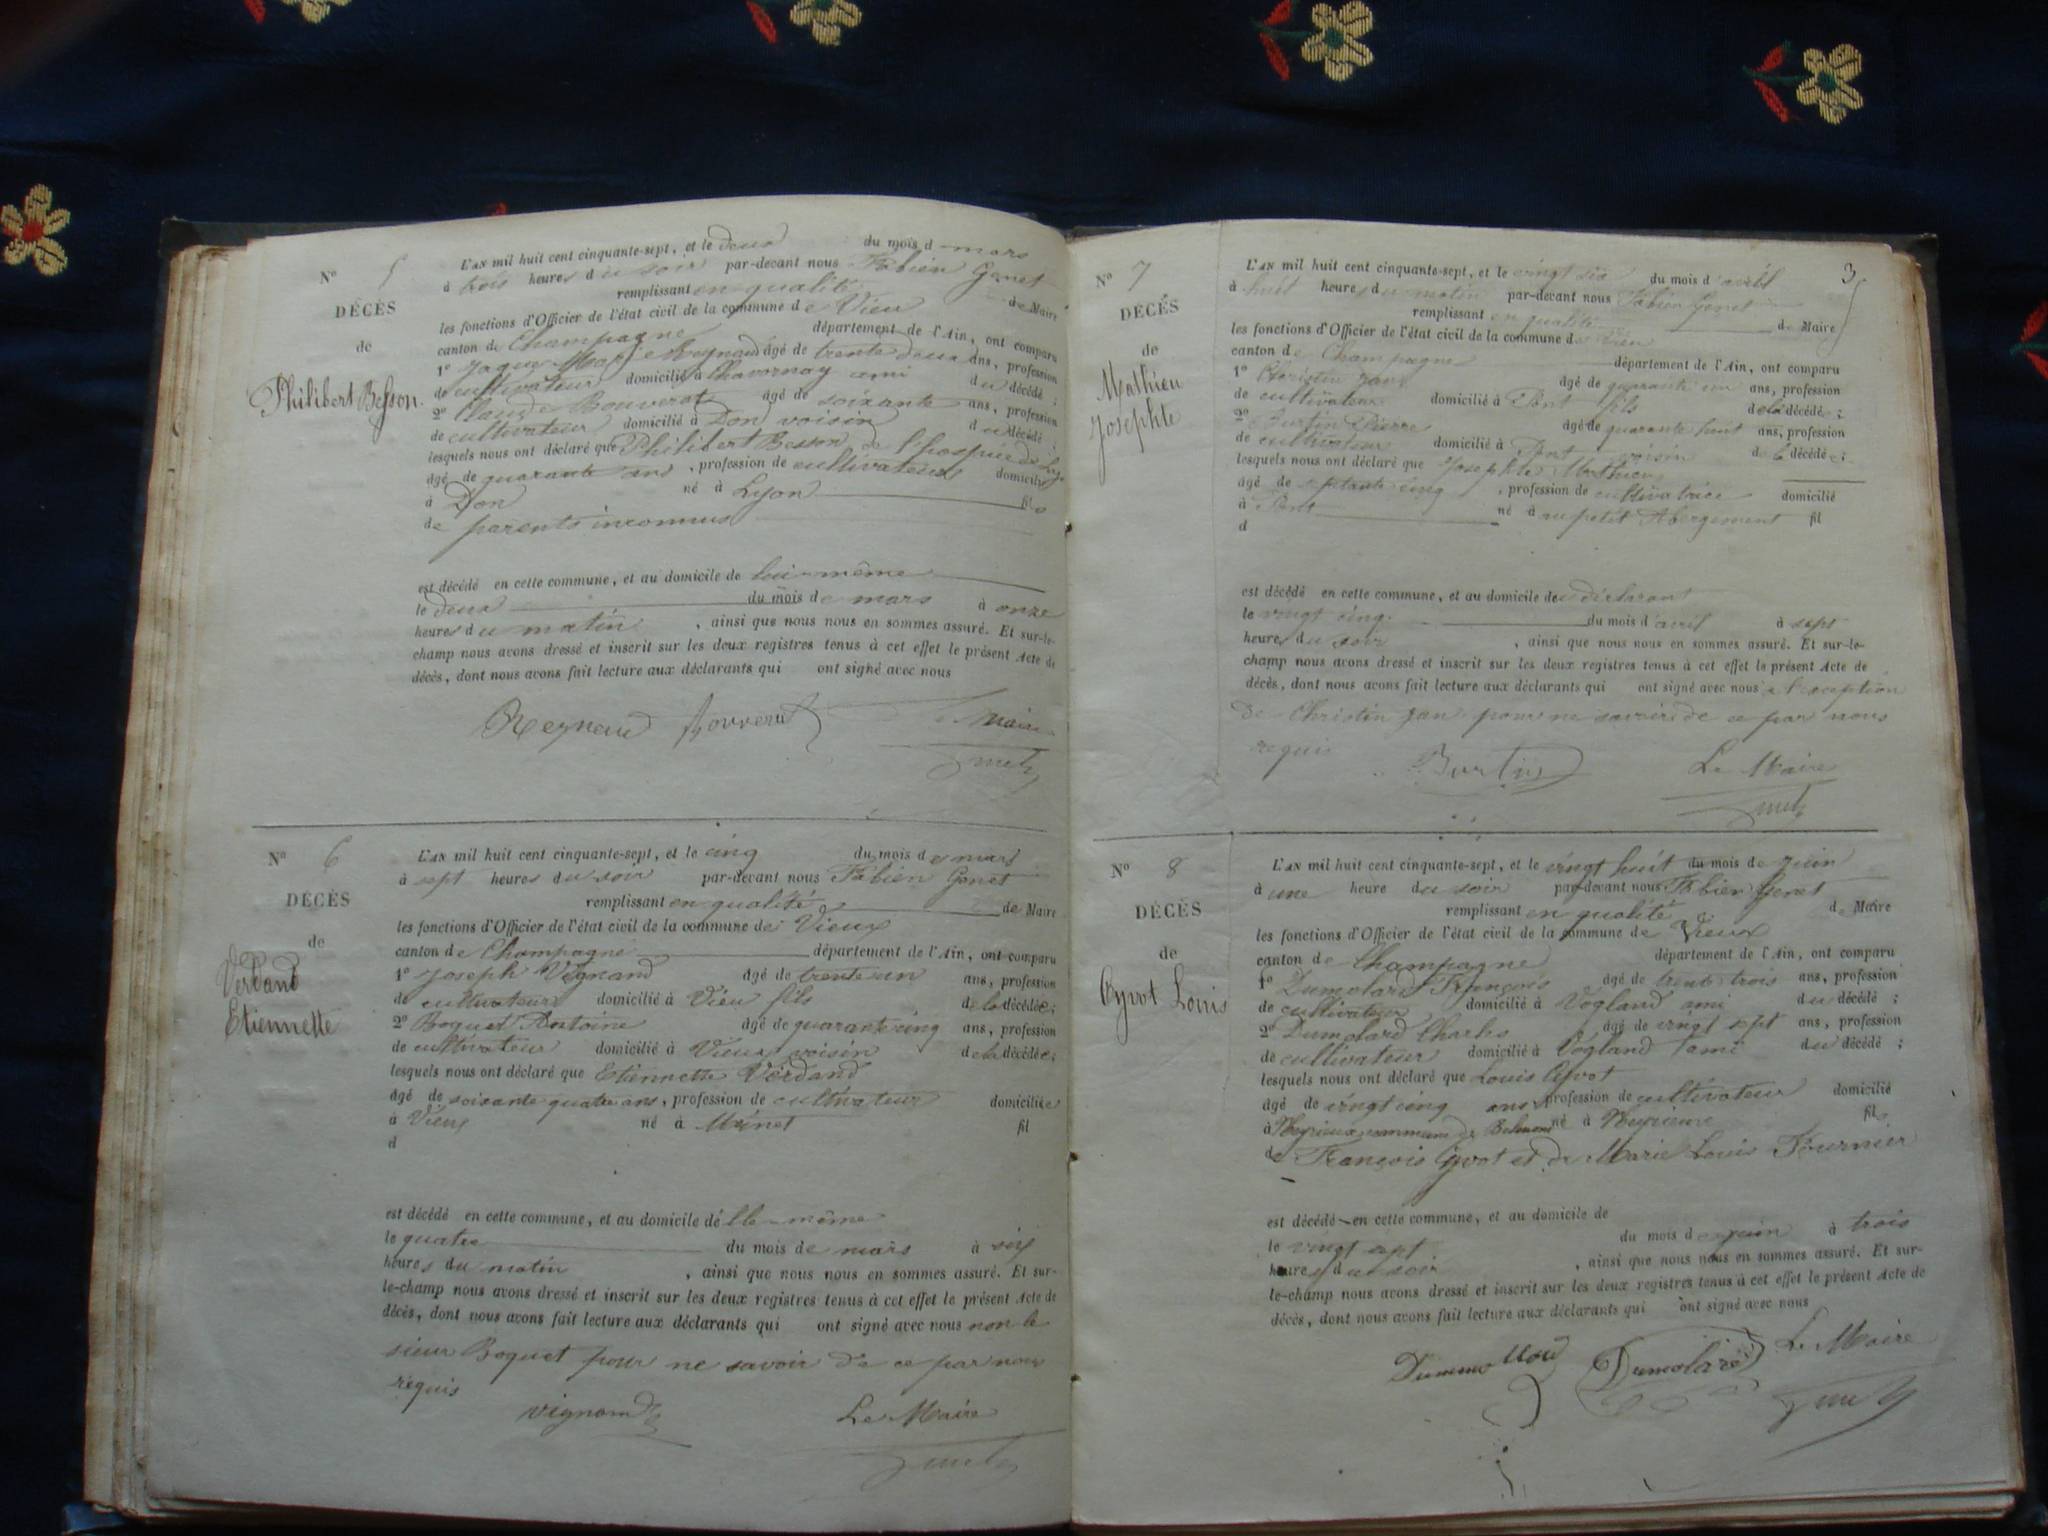 N° 5
DÉCÈS
de
Philibert Besson.
L'AN mil huit cent cinquante-sept, et le deux du mois d mars
à trois heures du soir par-devant nous Fabien Genet
remplissant en qualité de Maire
les fonctions d'Officier de l'état civil de la commune de Vieu
canton de Champagne département de l'Ain, ont comparu
1° Reynaud âgé de trente deux ans, profession
de cultivateur domicilié à Chavornay ami du décédé ;
2° Claude Bouverat âgé de soixante ans, profession
de cultivateur domicilié à Don voisin du décédé ;
lesquels nous ont déclaré que Philibert Besson, de l'hospice de
âgé de quarante ans, profession de cultivateur domicilié
à Don né à Lyon fils
de parents inconnus
est décédé en cette commune, et au domicile de lui-même
le deux du mois de mars à onze
heures du matin, ainsi que nous nous en sommes assuré. Et sur-le-
champ nous avons dressé et inscrit sur les deux registres tenus à cet effet le présent Acte de
décès, dont nous avons fait lecture aux déclarants qui ont signé avec nous
Reynaud Le Maire
N° 6
DÉCÈS
de
Verdand
Etiennette
L'AN mil huit cent cinquante-sept, et le cinq du mois de mars
à sept heures du soir par-devant nous Fabien Genet
remplissant en qualité de Maire
les fonctions d'Officier de l'état civil de la commune de Vieux
canton de Champagne département de l'Ain, ont comparu
1° Joseph Vignand âgé de trente un ans, profession
de cultivateur domicilié à Vieu fils de la décédée ;
2° Boquet Antoine âgé de quarante cinq ans, profession
de cultivateur domicilié à Vieux voisin de la décédée ;
lesquels nous ont déclaré que Etiennette Verdand
âgé de soixante quatre ans, profession de cultivateur domiciliée
à Vieux né à fil
d
est décédé en cette commune, et au domicile d'elle-même
le quatre du mois de mars à six
heures du matin, ainsi que nous nous en sommes assuré. Et sur-
le-champ nous avons dressé et inscrit sur les deux registres tenus à cet effet le présent Acte de
décès, dont nous avons fait lecture aux déclarants qui ont signé avec nous non le
sieur Boquet pour ne savoir de ce par nous
requis
Vignand Le Maire
3
N° 7
DÉCÈS
de
Mathieu
Josephte
L'AN mil huit cent cinquante-sept, et le vingt six du mois d'avril
à huit heures du matin par-devant nous Fabien Genet
remplissant en qualité de Maire
les fonctions d'Officier de l'état civil de la commune de Vieu
canton de Champagne département de l'Ain, ont comparu
1° Christin Jean âgé de quarante un ans, profession
de cultivateur domicilié à Pont fils de la décédée ;
2° Burtin Pierre âgé de quarante huit ans, profession
de cultivateur domicilié à Pont voisin de la décédée ;
lesquels nous ont déclaré que Josephte Mathieu
âgé de septante cinq, profession de cultivatrice domicilié
à Pont né à au petit Abergement fil
d
est décédé en cette commune, et au domicile du déclarant
le vingt cinq du mois d'avril à sept
heures du soir, ainsi que nous nous en sommes assuré. Et sur-le-
champ nous avons dressé et inscrit sur les deux registres tenus à cet effet le présent Acte de
décès, dont nous avons fait lecture aux déclarants qui ont signé avec nous à l'exception
de Christin Jean pour ne savoir de ce par nous
requis Burtin Le Maire
N° 8
DÉCÈS
de
Cyvot Louis
L'AN mil huit cent cinquante-sept, et le vingt huit du mois de juin
à une heure du soir par-devant nous Fabien Genet
remplissant en qualité de Maire
les fonctions d'Officier de l'état civil de la commune de Vieux
canton de Champagne département de l'Ain, ont comparu
1° Dumolard François âgé de trente trois ans, profession
de cultivateur domicilié à Vogland ami du décédé ;
2° Dumolard Charles âgé de vingt sept ans, profession
de cultivateur domicilié à Vogland ami du décédé ;
lesquels nous ont déclaré que Louis Cyvot
âgé de vingt cinq ans, profession de cultivateur domicilié
à commune de Belmont né à fils
de François Cyvot et de Marie Louis Fournier
est décédé en cette commune, et au domicile de
le vingt sept du mois de juin à trois
heures du soir, ainsi que nous nous en sommes assuré. Et sur-
le-champ nous avons dressé et inscrit sur les deux registres tenus à cet effet le présent Acte de
décès, dont nous avons fait lecture aux déclarants qui ont signé avec nous
Dumolard Le Maire